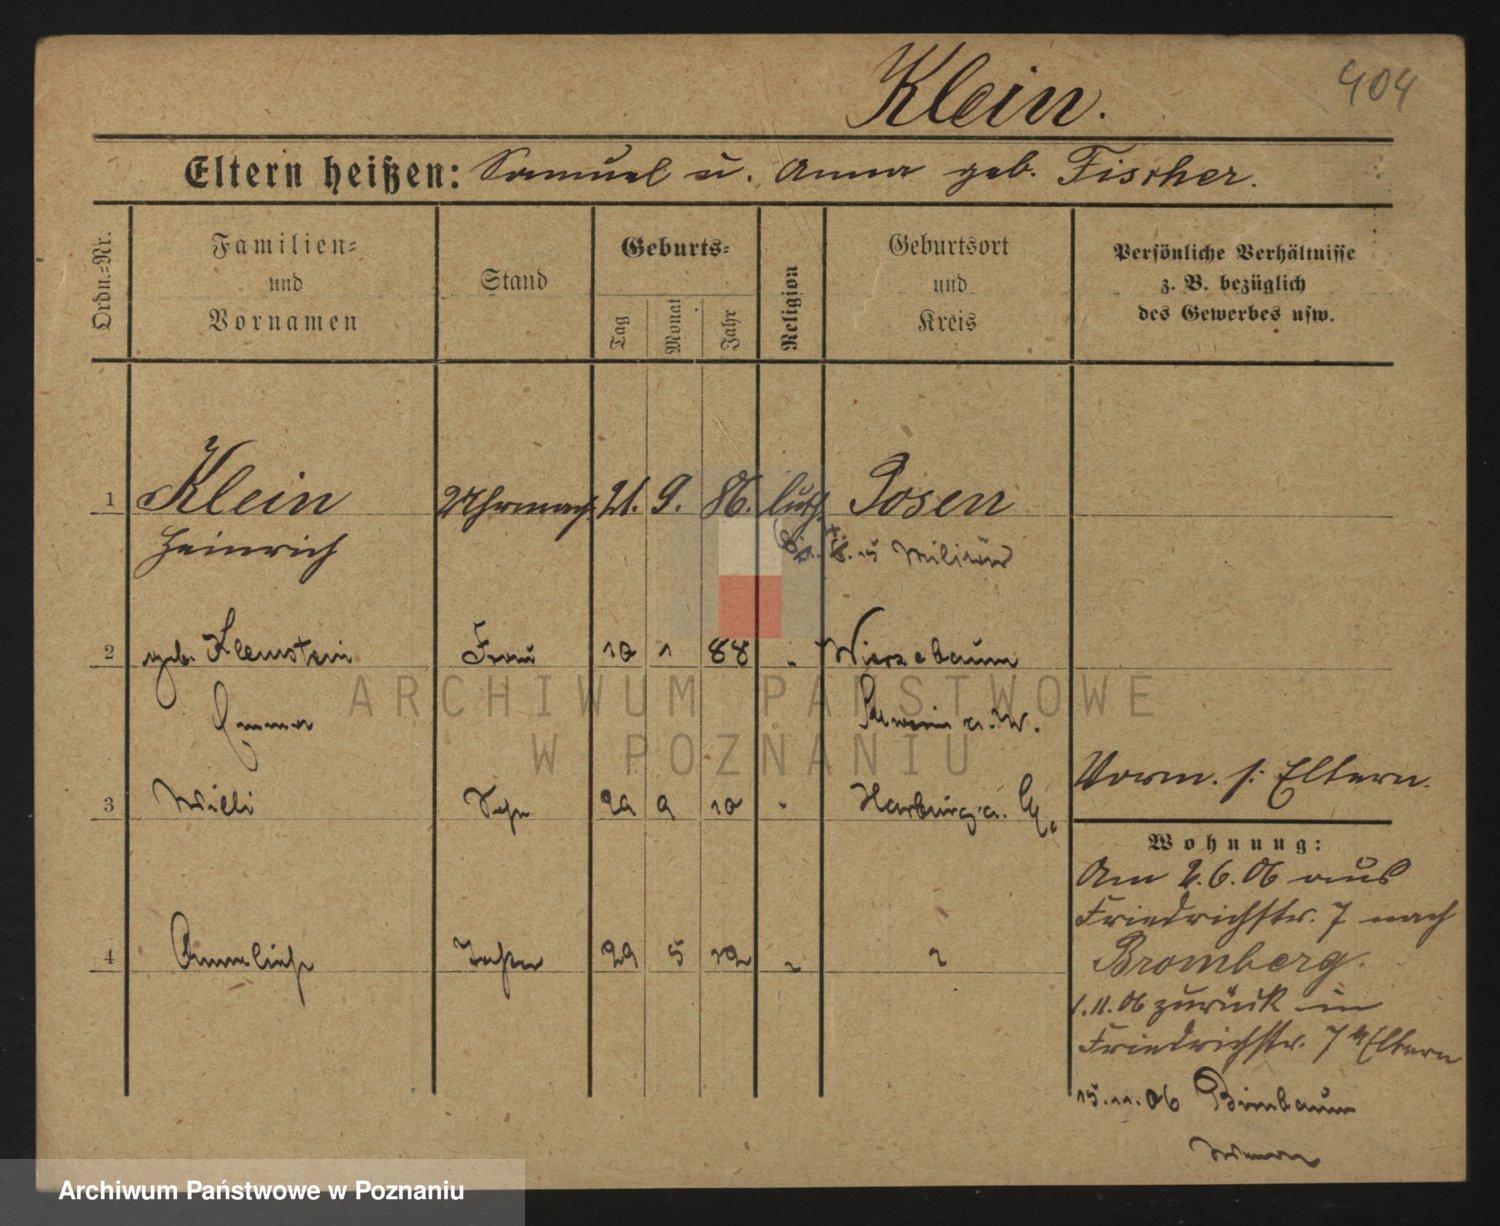 Klein.
404
Eltern heißen: Samuel u. Anna geb. Fischer.
Ordn.=Nr.
Familien=
und
Vornamen
Stand
Geburts=
Tag
Monat
Jahr
Religion
Geburtsort
und
Kreis
Persönliche Verhältnisse
z. B. bezüglich
des Gewerbes usw.
1 Klein Uhrmach. 21. 9. 86. luth. Posen
Heinrich
Militär
2 geb. Klemstein Frau 10 1 88 " Wierzebaum
Emma Schwerin a. W.
3 Willi Sohn 29 9 10 " Harburg a. E.
4 Annelies Tochter 29 5 12 "
Vorm. s: Eltern.
Wohnung:
Am 2.6.06 aus
Friedrichstr. 7 nach
Bromberg.
1.11.06 zurück in
Friedrichstr. 7 b/Eltern
15.11.06 Birnbaum
ARCHIWUM PAŃSTWOWE
W POZNANIU
Archiwum Państwowe w Poznaniu